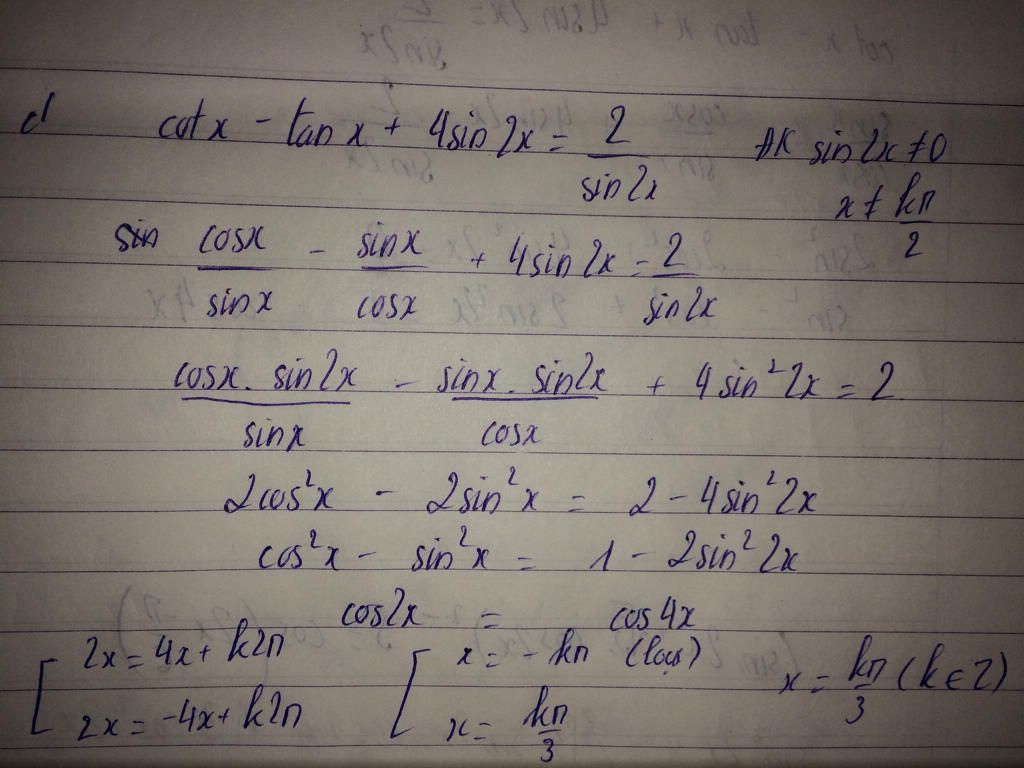 d cotx - tan x + 4sin2x = 2/sin2x ĐK sin2x ≠ 0
x ≠ kπ/2
cosx/sinx - sinx/cosx + 4sin2x = 2/sin2x
cosx. sin2x/sinx - sinx. sin2x/cosx + 4sin²2x = 2
2cos²x - 2sin²x = 2 - 4sin²2x
cos²x - sin²x = 1 - 2sin²2x
cos2x = cos4x
[ 2x = 4x + k2π [ x = -kπ (loại) x = kπ/3 (k ∈ Z)
2x = -4x + k2π x = kπ/3